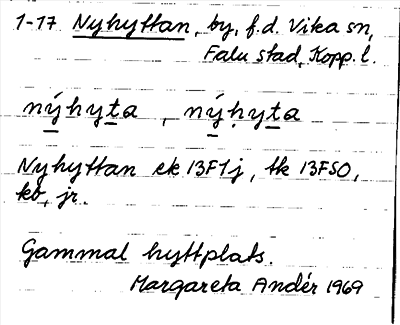 1-17 Nyhyttan, by, f.d. Vika sn,
Falu stad, Kopp. l.
nýhyta, nýhyta
Nyhyttan ek 13F1j, tk 13FSO,
kb, jr.
Gammal hyttplats.
Margareta Andér 1969